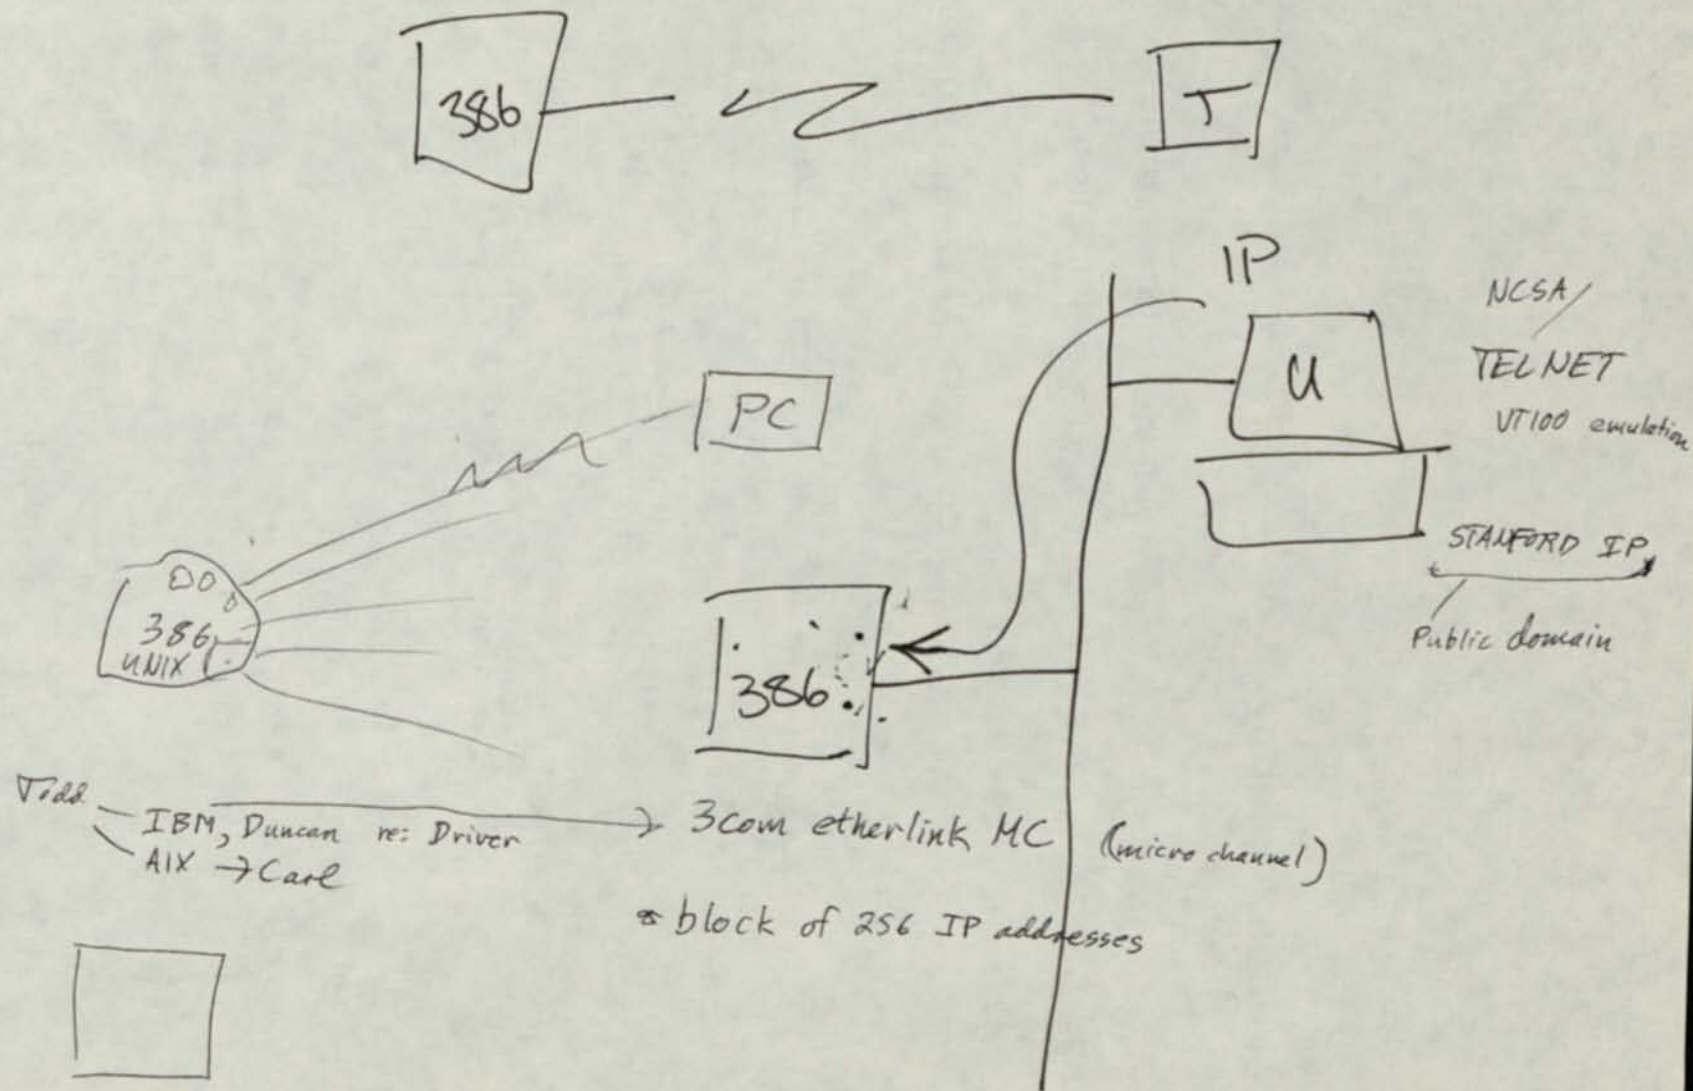 386
T
IP
NCSA/
TELNET
VT100 emulation
U
PC
STANFORD IP
Public domain
386
UNIX
386
Todd
IBM, Duncan re: Driver → 3com etherlink MC (micro channel)
AIX → Carl
* block of 256 IP addresses